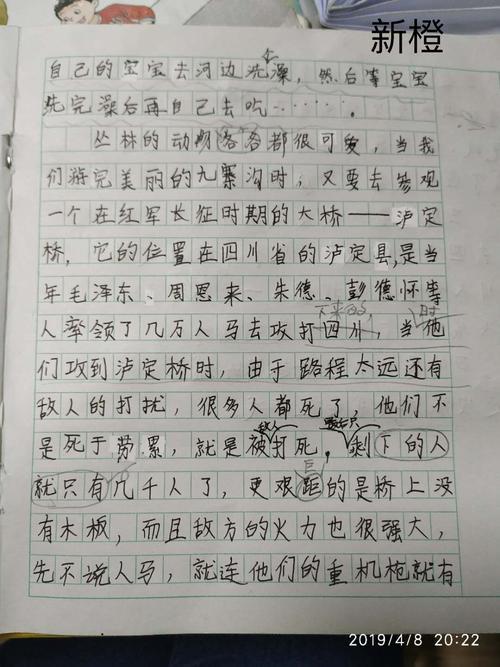 新橙
自己的宝宝去河边洗澡，然后等宝宝
洗完澡后再自己去吃……。
丛林的动物各各都很可爱，当我
们游完美丽的九寨沟时，又要去参观
一个在红军长征时期的大桥——泸定
桥，它的位置在四川省的泸定县,是当
年毛泽东、周恩来、朱德、彭德怀等
人率领了几万人马去攻打四川，当他
们攻到泸定桥时，由于路程太远还有
敌人的打扰，很多人都死了，他们不
是死于劳累，就是被打死。剩下的人
敌人
就只有几千人了，更艰距的是桥上没
巨
有木板，而且敌方的火力也很强大，
先不说人马，就连他们的重机枪就有
2019/4/8 20:22